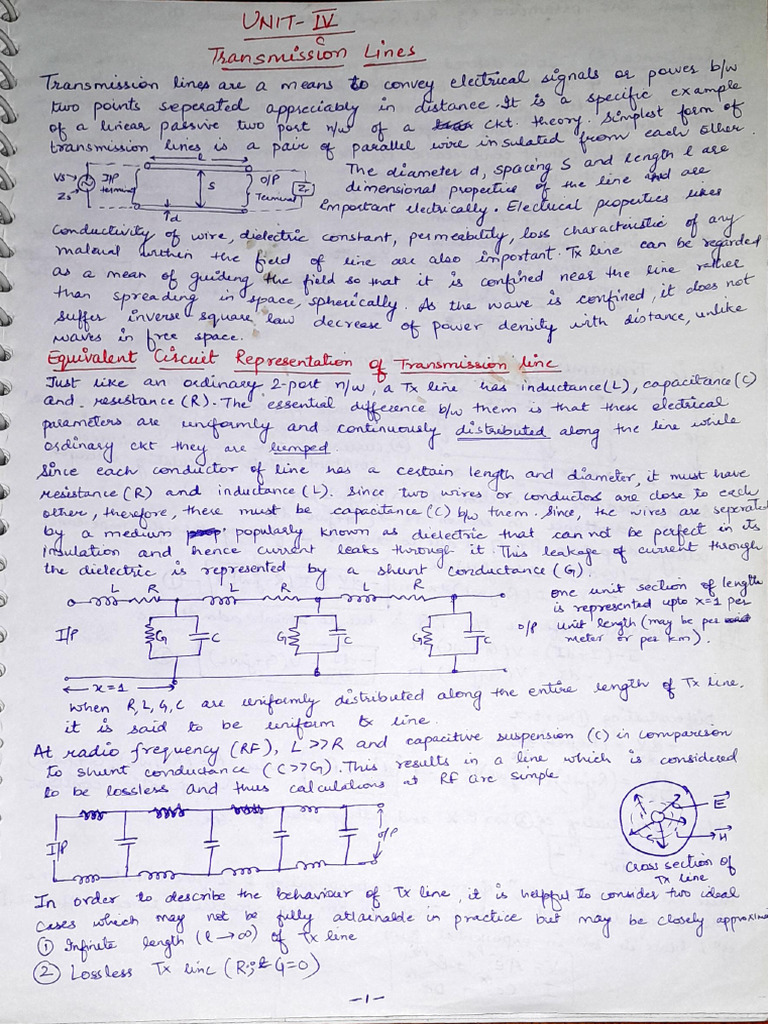 UNIT-IV
Transmission Lines
Transmission lines are a means to convey electrical signals or power b/w
two points seperated appreciably in distance. It is a specific example
of a linear passive two port n/w of a ckt. theory. Simplest form of
transmission lines is a pair of parallel wire insulated from each other.
l
Vs
Zs
I/P
terminal
S
O/P
Terminal
Zr
d
The diameter d, spacing S and length l are
dimensional properties of the line and are
important electrically. Electrical properties likes
conductivity of wire, dielectric constant, permeability, loss characteristic of any
material within the field of line are also important. Tx line can be regarded
as a mean of guiding the field so that it is confined near the line rather
than spreading in space, spherically. As the wave is confined, it does not
suffer inverse square law decrease of power density with distance, unlike
waves in free space.
Equivalent Circuit Representation of Transmission line
Just like an ordinary 2-port n/w, a Tx line has inductance(L), capacitance(C)
and resistance(R). The essential difference b/w them is that these electrical
parameters are uniformly and continuously distributed along the line while
ordinary ckt they are lumped.
Since each conductor of line has a certain length and diameter, it must have
resistance(R) and inductance(L). Since two wires or conductors are close to each
other, therefore, there must be capacitance(C) b/w them. Since, the wires are seperated
by a medium popularly known as dielectric that can not be perfect in its
insulation and hence current leaks through it. This leakage of current through
the dielectric is represented by a shunt conductance(G).
L R L R L R
I/P G C G C G C O/P
x=1
one unit section of length
is represented upto x=1 per
unit length (may be per
meter or per km).
when R, L, G, C are uniformly distributed along the entire length of Tx line,
it is said to be uniform tx line.
At radio frequency (RF), L>>R and capacitive suspension (C) in comparison
to shunt conductance (C>>G). This results in a line which is considered
to be lossless and thus calculations at RF are simple
I/P
O/P
E
H
cross section of
Tx line
In order to describe the behaviour of Tx line, it is helpful to consider two ideal
cases which may not be fully attainable in practice but may be closely approxim
① Infinite length (l→∞) of Tx line
② Lossless Tx line (R; G=0)
-1-